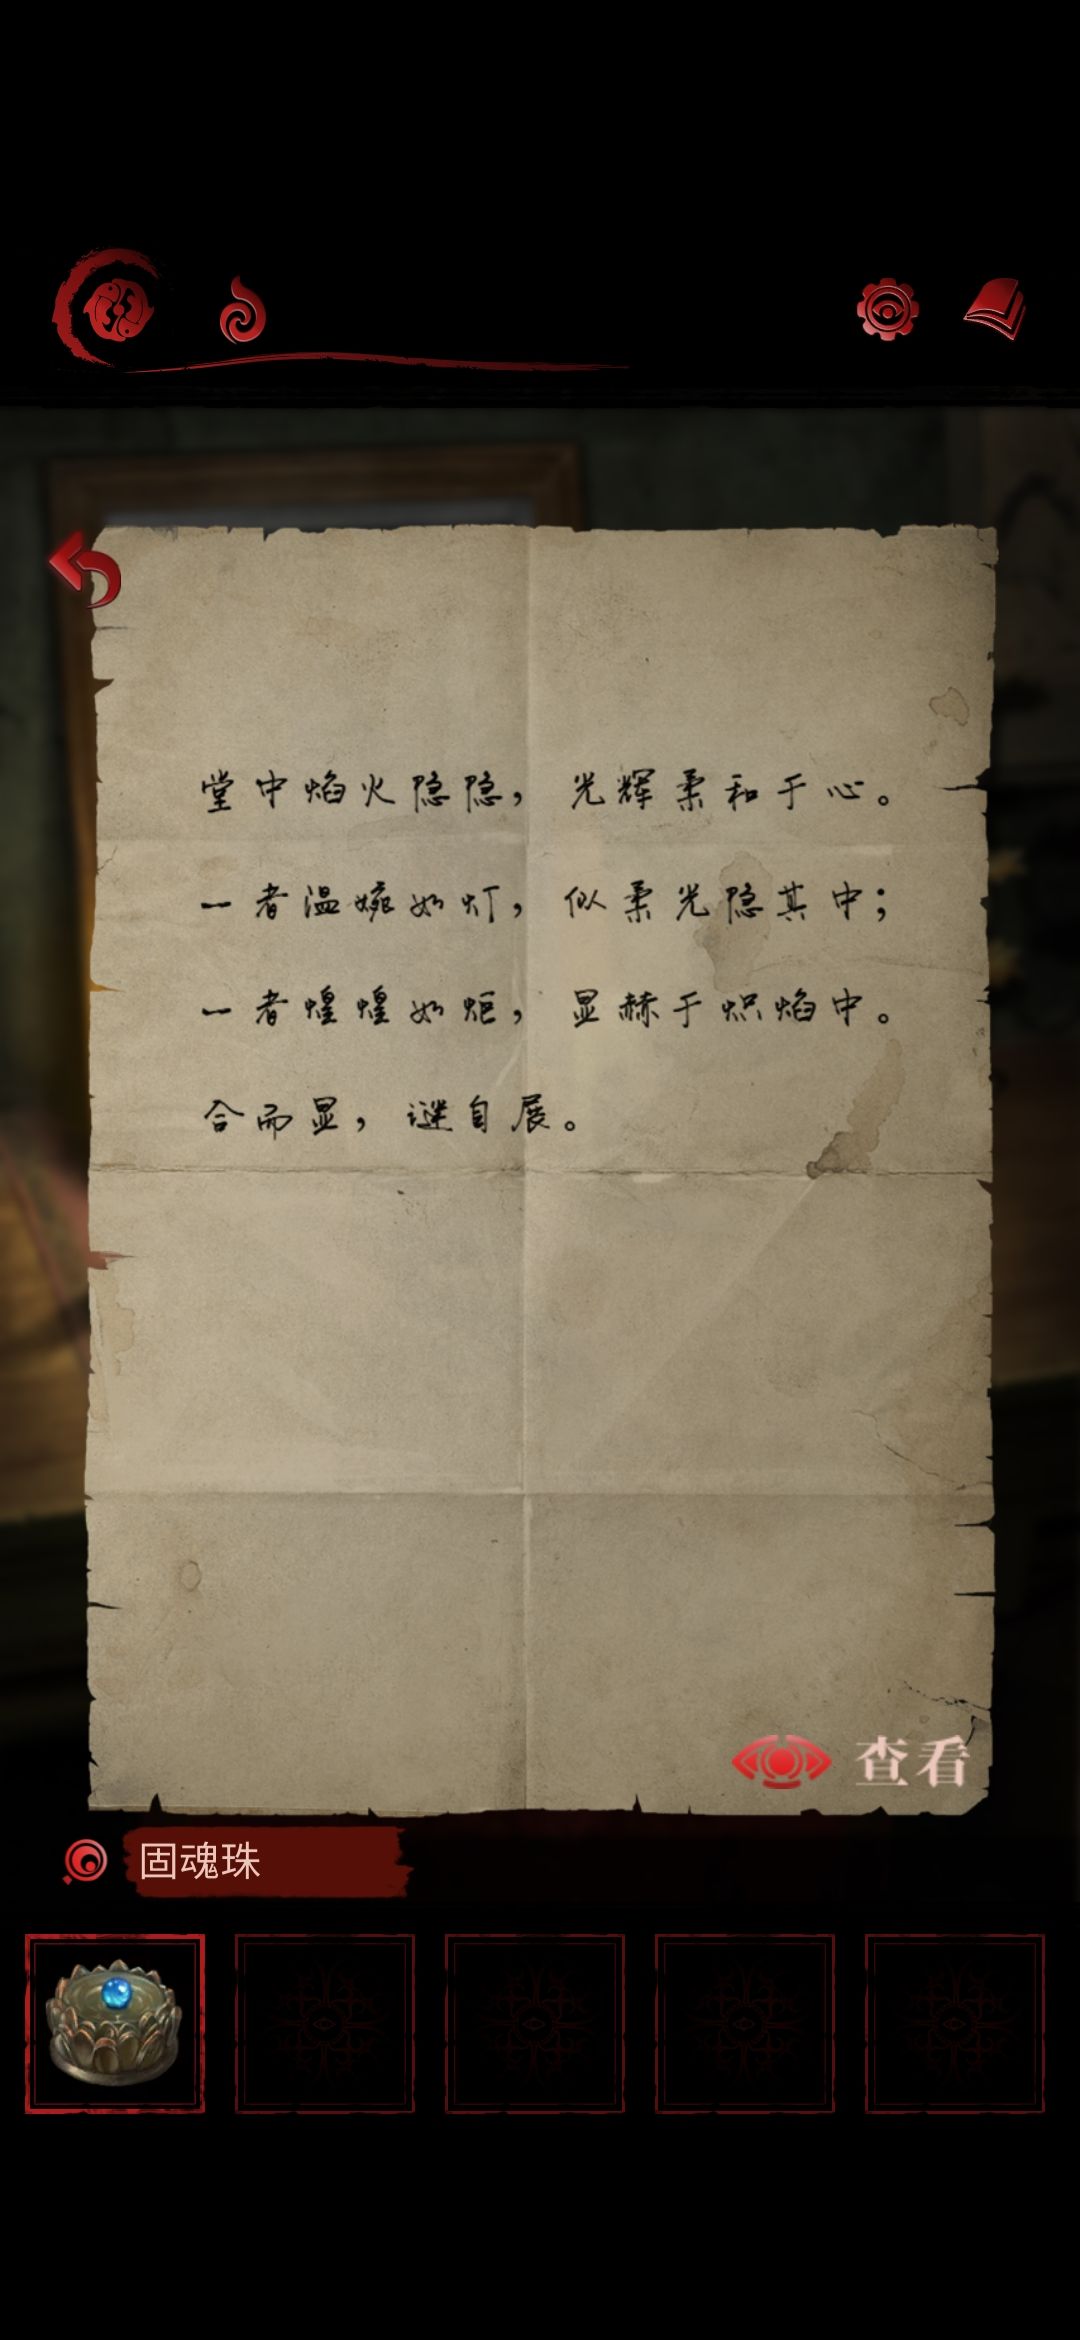 堂中焰火隐隐，光辉柔和于心。
一者温婉如灯，似柔光隐其中；
一者煌煌如炬，显赫于炽焰中。
合而显，谜自展。
查看
固魂珠